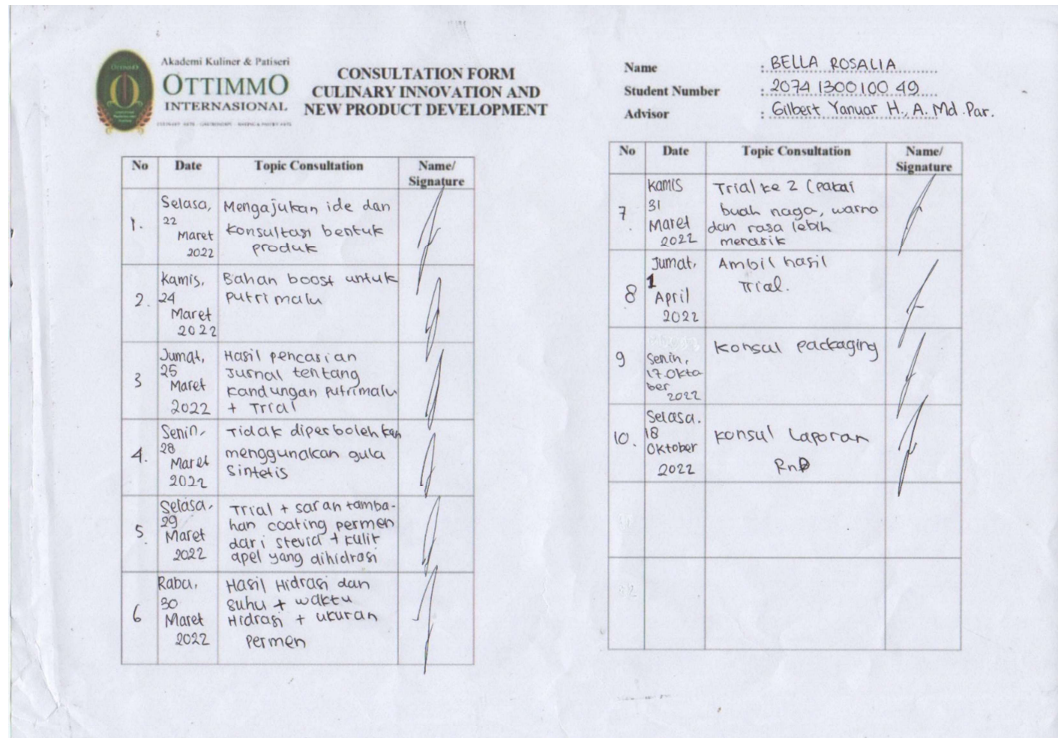 Akademi Kuliner & Patiseri
OTTIMMO
INTERNASIONAL
CONSULTATION FORM
CULINARY INNOVATION AND
NEW PRODUCT DEVELOPMENT
Name : BELLA ROSALIA
Student Number : 2074 1300 100 49
Advisor : Gilbert Yanuar H., A. Md. Par.
No Date Topic Consultation Name/
Signature
1. Selasa, 22 Maret 2022
Mengajukan ide dan
konsultasi bentuk
produk
2. Kamis, 24 Maret 2022
Bahan boost untuk
putri malu
3 Jumat, 25 Maret 2022
Hasil pencarian
Jurnal tentang
kandungan putrimalu
+ Trial
4. Senin, 28 Maret 2022
Tidak diperbolehkan
menggunakan gula
sintetis
5 Selasa, 29 Maret 2022
Trial + saran tamba-
han coating permen
dari stevia + kulit
apel yang dihidrasi
6 Rabu, 30 Maret 2022
Hasil Hidrasi dan
suhu + waktu
Hidrasi + ukuran
permen
No Date Topic Consultation Name/
Signature
7 Kamis 31 Maret 2022
Trial ke 2 (pakai
buah naga, warna
dan rasa lebih
menarik
8 Jumat, 1 April 2022
Ambil hasil
Trial.
9 Senin, 17 Oktober 2022
Konsul packaging
10. Selasa. 18 Oktober 2022
Konsul Laporan
RnD